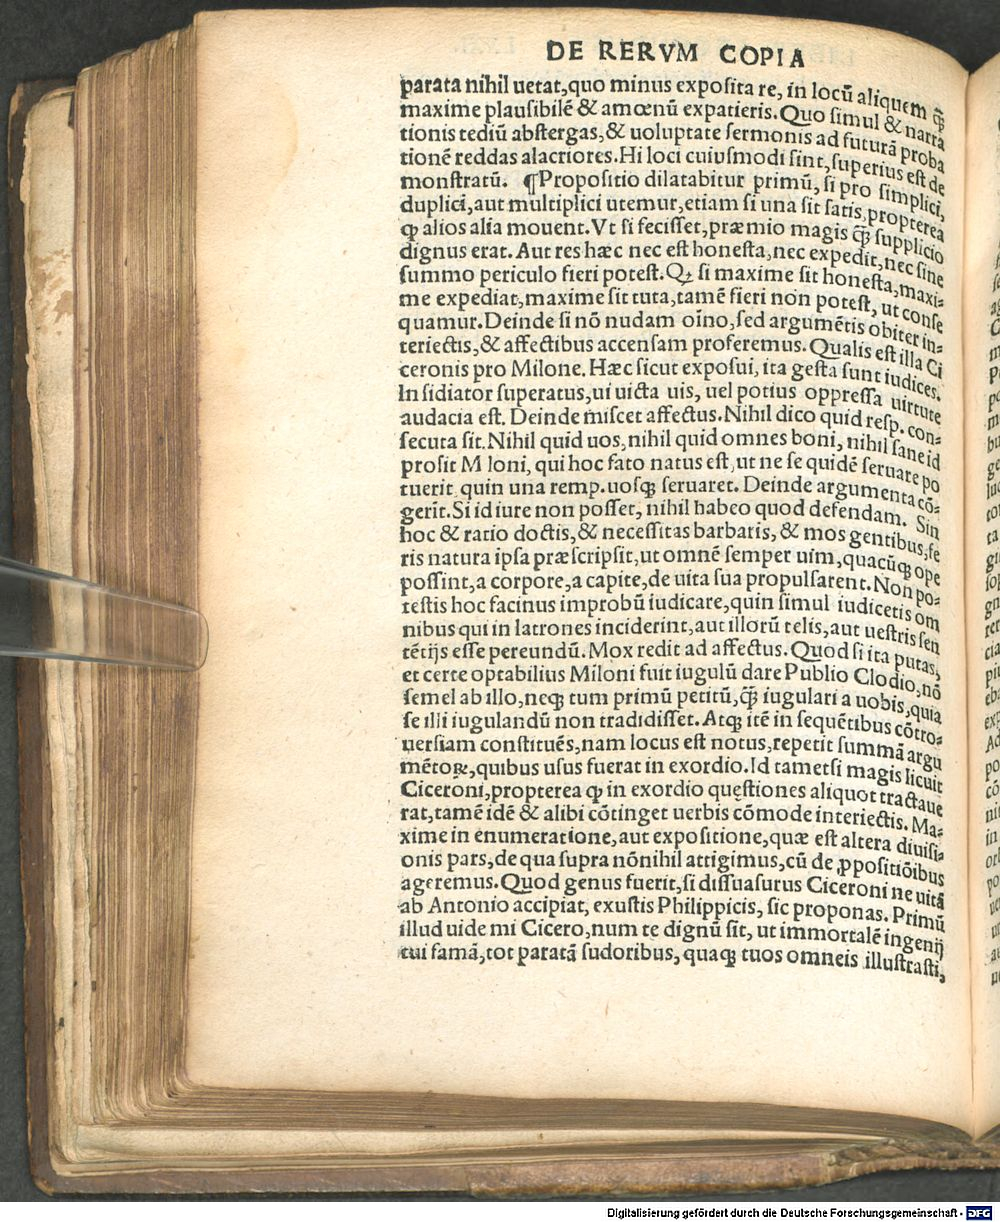 DE RERVM COPIA
parata nihil uetat,quo minus exposita re, in locũ aliquem q̃ꝫ
maxime plausibilẽ & amœnũ expatieris. Quo simul & narra
tionis tediũ abstergas,& uoluptate sermonis ad futurã proba
tionẽ reddas alacriores. Hi loci cuiusmodi sint, superius est de
monstratũ. ¶Propositio dilatabitur primũ, si pro simplici,
duplici,aut multiplici utemur,etiam si una sit satis,propterea
ꝙ alios alia mouent. Vt si fecisset,præmio magis q̃ꝫ supplicio
dignus erat. Aut res hæc nec est honesta,nec expedit,nec sine
summo periculo fieri potest. Qꝫ si maxime sit honesta,maxi-
me expediat,maxime sit tuta,tamẽ fieri non potest, ut conse
quamur. Deinde si nõ nudam oĩno,sed argumẽtis obiter in-
teriectis,& affectibus accensam proferemus. Qualis est illa Ci
ceronis pro Milone. Hæc sicut exposui, ita gesta sunt iudices.
Insidiator superatus,ui uicta uis, uel potius oppressa uirtute
audacia est. Deinde miscet affectus. Nihil dico quid resp. con-
secuta sit. Nihil quid uos, nihil quid omnes boni, nihil sane id
prosit M loni, qui hoc fato natus est ,ut ne se quidẽ seruare po
tuerit quin una remp.uosqꝫ seruaret. Deinde argumenta cõ-
gerit. Si id iure non posset, nihil habeo quod defendam. Sin
hoc & ratio doctis,& necessitas barbaris, & mos gentibus,fe
ris natura ipsa præscripsit,ut omnẽ semper uim,quacũqꝫ ope
possint,a corpore,a capite,de uita sua propulsarent. Non po-
testis hoc facinus improbũ iudicare,quin simul iudicetis om
nibus qui in latrones inciderint,aut illorũ telis,aut uestris sen
tẽtijs esse pereundũ. Mox redit ad affectus. Quod si ita putas,
et certe optabilius Miloni fuit iugulũ dare Publio Clodio,nõ
semel ab illo,neqꝫ tum primũ petitũ,q̃ꝫ iugulari a uobis,quia
se illi iugulandũ non tradidisset. Atqꝫ itẽ in sequẽtibus cõtro-
uersiam constituẽs,nam locus est notus,repetit summã argu
mẽtoꝝ,quibus usus fuerat in exordio. Id tametsi magis licuit
Ciceroni,propterea ꝙ in exordio quęstiones aliquot tractaue
rat,tamẽ idẽ & alibi cõtinget uerbis cõmode interiectis. Ma-
xime in enumeratione,aut expositione,quæ est altera diuisi-
onis pars,de qua supra nõnihil attigimus,cũ de ꝓpositiõibus
ageremus. Quod genus fuerit,si dissuasurus Ciceroni ne uitã
ab Antonio accipiat, exustis Philippicis, sic proponas. Primũ
illud uide mi Cicero,num te dignũ sit, ut immortalẽ ingenij
tui famã,tot paratã sudoribus, quaqꝫ tuos omneis illustrasti,
Digitalisierung gefördert durch die Deutsche Forschungsgemeinschaft - DFG